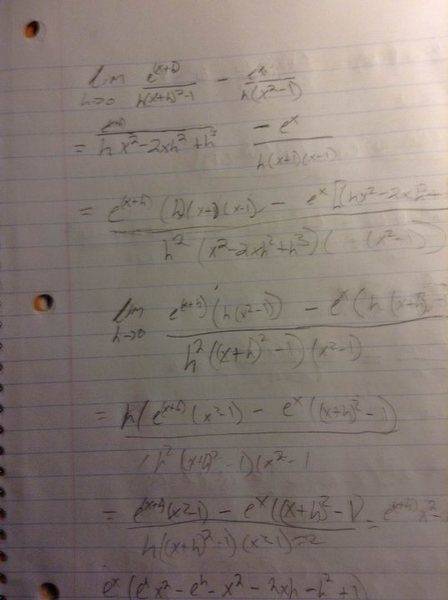 lim h→0 e^(x+h) / h(x+h)^2-1 - e^x / h(x^2-1)
= e^(x+h) / hx^2-2xh^2+h^3 - e^x / h(x+1)(x-1)
= e^(x+h) (h)(x+1)(x-1) - e^x [(hx^2-2xh^2 / h^2 (x^2-2xh^2+h^3)( (x^2-1)
lim h→0 e^(x+h) (h(x^2-1)) - e^x (h (x+h)^2 / h^2 ((x+h)^2-1)(x^2-1)
= h(e^(x+h) (x^2-1) - e^x ((x+h)^2-1) / h^2 (x+h)^2-1)(x^2-1
= e^(x+h) (x^2-1) - e^x ((x+h)^2-1) / h((x+h)^2-1)(x^2-1) = e^(x+h) x^2-
e^x (e^h x^2 - e^h - x^2 - 2xh - h^2 + 1)